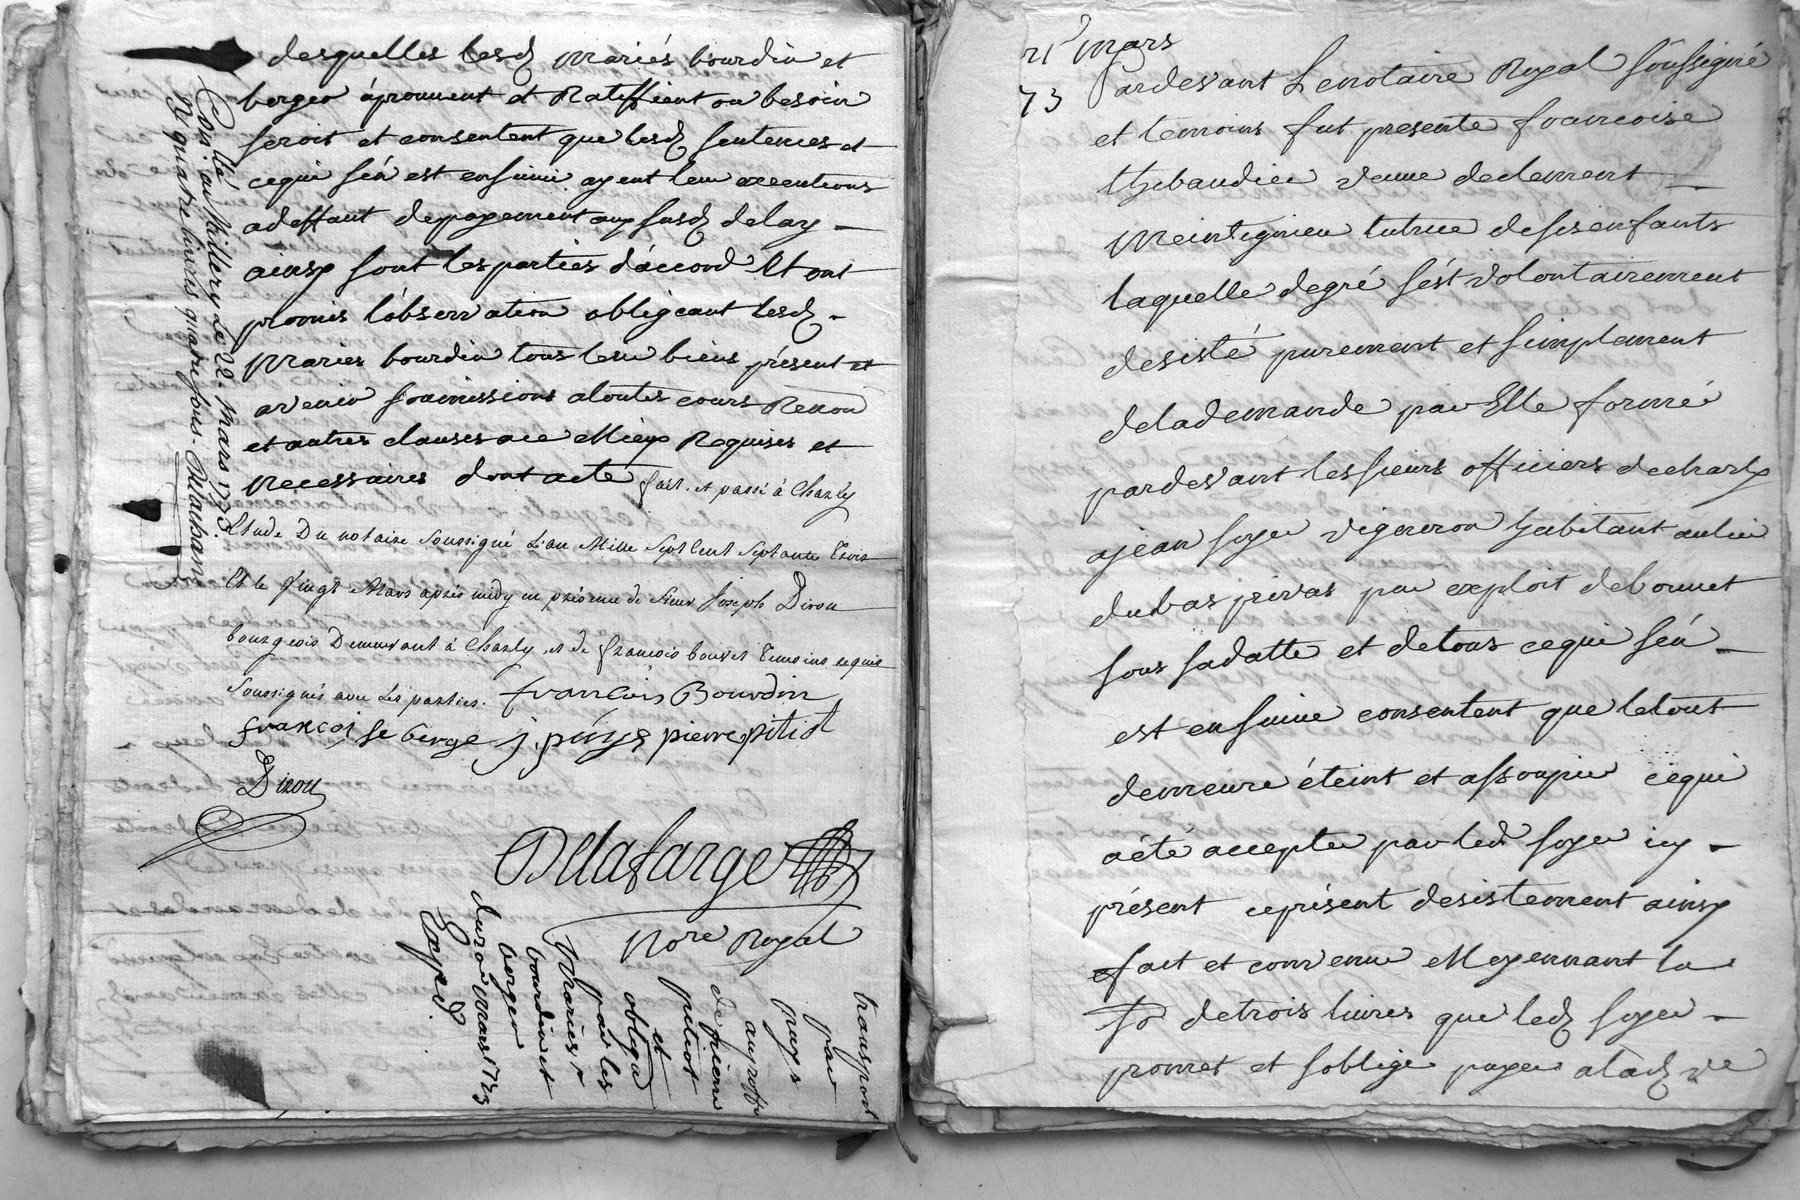 desquelles lesd mariés bourdin et
berger áprouuent et Ratiffient ou besoin
seroit et consentent que lesd sentences et
cequi séń est ensuiui ayent leur executions
adeffaut depayement aux susd delay
ainsy sont les parties d'áccord Et ont
promis l'óbseruation obligeant lesd
Mariés bourdin tous leur biens présent et
avenir soumissions atoutes cours Renon
et autres clauses
Requises et
necessaires dont acte fait et passé à Charly
Etude Du notaire Soussigné L'an Mille Sept Cent Septante trois
Et le Vingt Mars après midy en présence de Sieur Joseph Diron
bourgeois Demeurant à Charly et de François bouvet temoins requis
Soussignés avec Les parties. francois Bourdin
francoise berge j. puys pierre pitiot
Diron
Delafarge
Nore Royal
transport
par
puys
auproffit
de pierre
pitiot
et
obliga
par les
Mariés
bourdin et
berger
du 20 mars 1773
Exped.
Con.llé au Millery Le 22. Mars 1773.
R quatre livres quatre sous.
21 mars
73
Pardevant Le notaire Royal soussigné
et temoins fut presente francoise
thebaudier veuve declement
tutrice desesenfants
laquelle degré s'ést volontairement
desisté purement et simplement
delademande par Elle formé
pardevant lessieurs officiers decharly
ajean soyer vigneron habitant aulieu
dubas privas par exploit debonnet
sous sadatte et detous cequi séń
est ensuiui consentent que letout
demeure éteint et assoupie cequi
aété accepté par led soyer icy
présent ceprésent desistement ainsy
fait et convenu Moyennant la
detrois livres que led soyer
promet et soblige payer alad ve